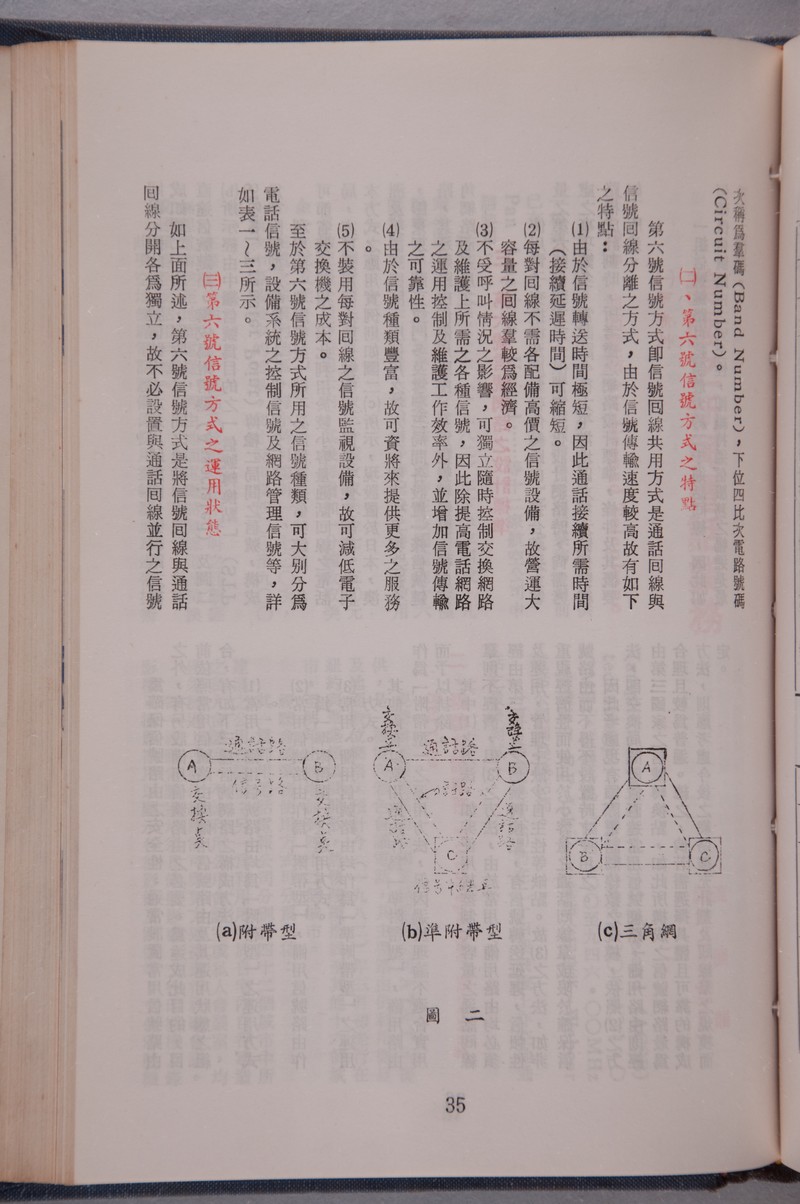 次稱爲羣碼（Band Number），下位四比次電路號碼
（Circuit Number）。
㈡、第六號信號方式之特點
第六號信號方式卽信號回線共用方式是通話回線與
信號回線分離之方式，由於信號傳輸速度較高故有如下
之特點：
(1)由於信號轉送時間極短，因此通話接續所需時間
（接續延遲時間）可縮短。
(2)每對回線不需各配備高價之信號設備，故營運大
容量之回線羣較爲經濟。
(3)不受呼叫情況之影響，可獨立隨時控制交換網路
及維護上所需之各種信號，因此除提高電話網路
之運用控制及維護工作效率外，並增加信號傳輸
之可靠性。
(4)由於信號種類豐富，故可資將來提供更多之服務
。
(5)不裝用每對回線之信號監視設備，故可減低電子
交換機之成本。
至於第六號信號方式所用之信號種類，可大別分爲
電話信號，設備系統之控制信號及網路管理信號等，詳
如表一～三所示。
㈢第六號信號方式之運用狀態
如上面所述，第六號信號方式是將信號回線與通話
回線分開各爲獨立，故不必設置與通話回線並行之信號
通話路
A
B
信号路
交換点
交換点
(a)附帶型
交換点
交換点
通話路
A
B
信号路
通話路
通話路
C
(b)準附帶型
A
B
C
(c)三角網
圖 二
35